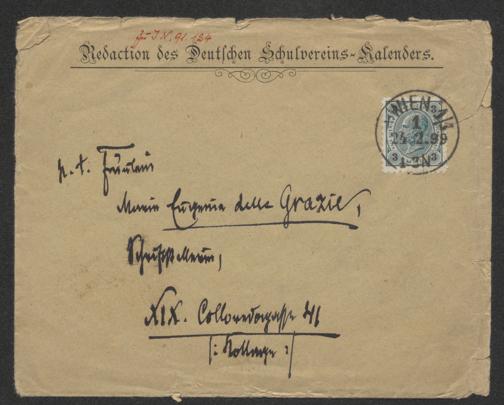 Zu I.N. 91.124
Redaction des Deutschen Schulvereins-Kalenders.
WIEN 1/1
1
24.2.99
1-3N
3 3
p. t. Fräulein
Marie Eugenie delle Grazie,
Schriftstellerin,
XIX. Colloredogasse